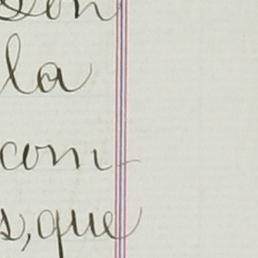 son
la
com
s, que